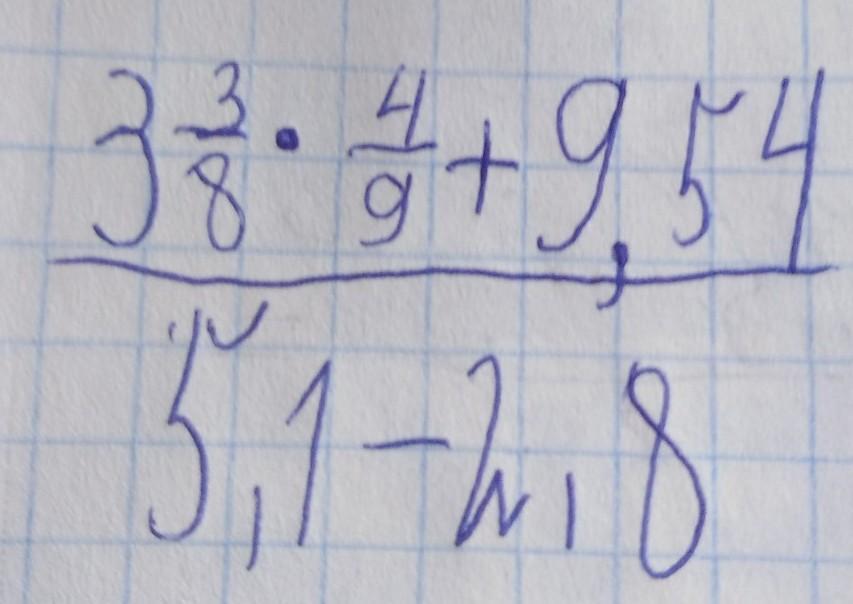 3 3/8 · 4/9 + 9,54
5,1 - 2,8